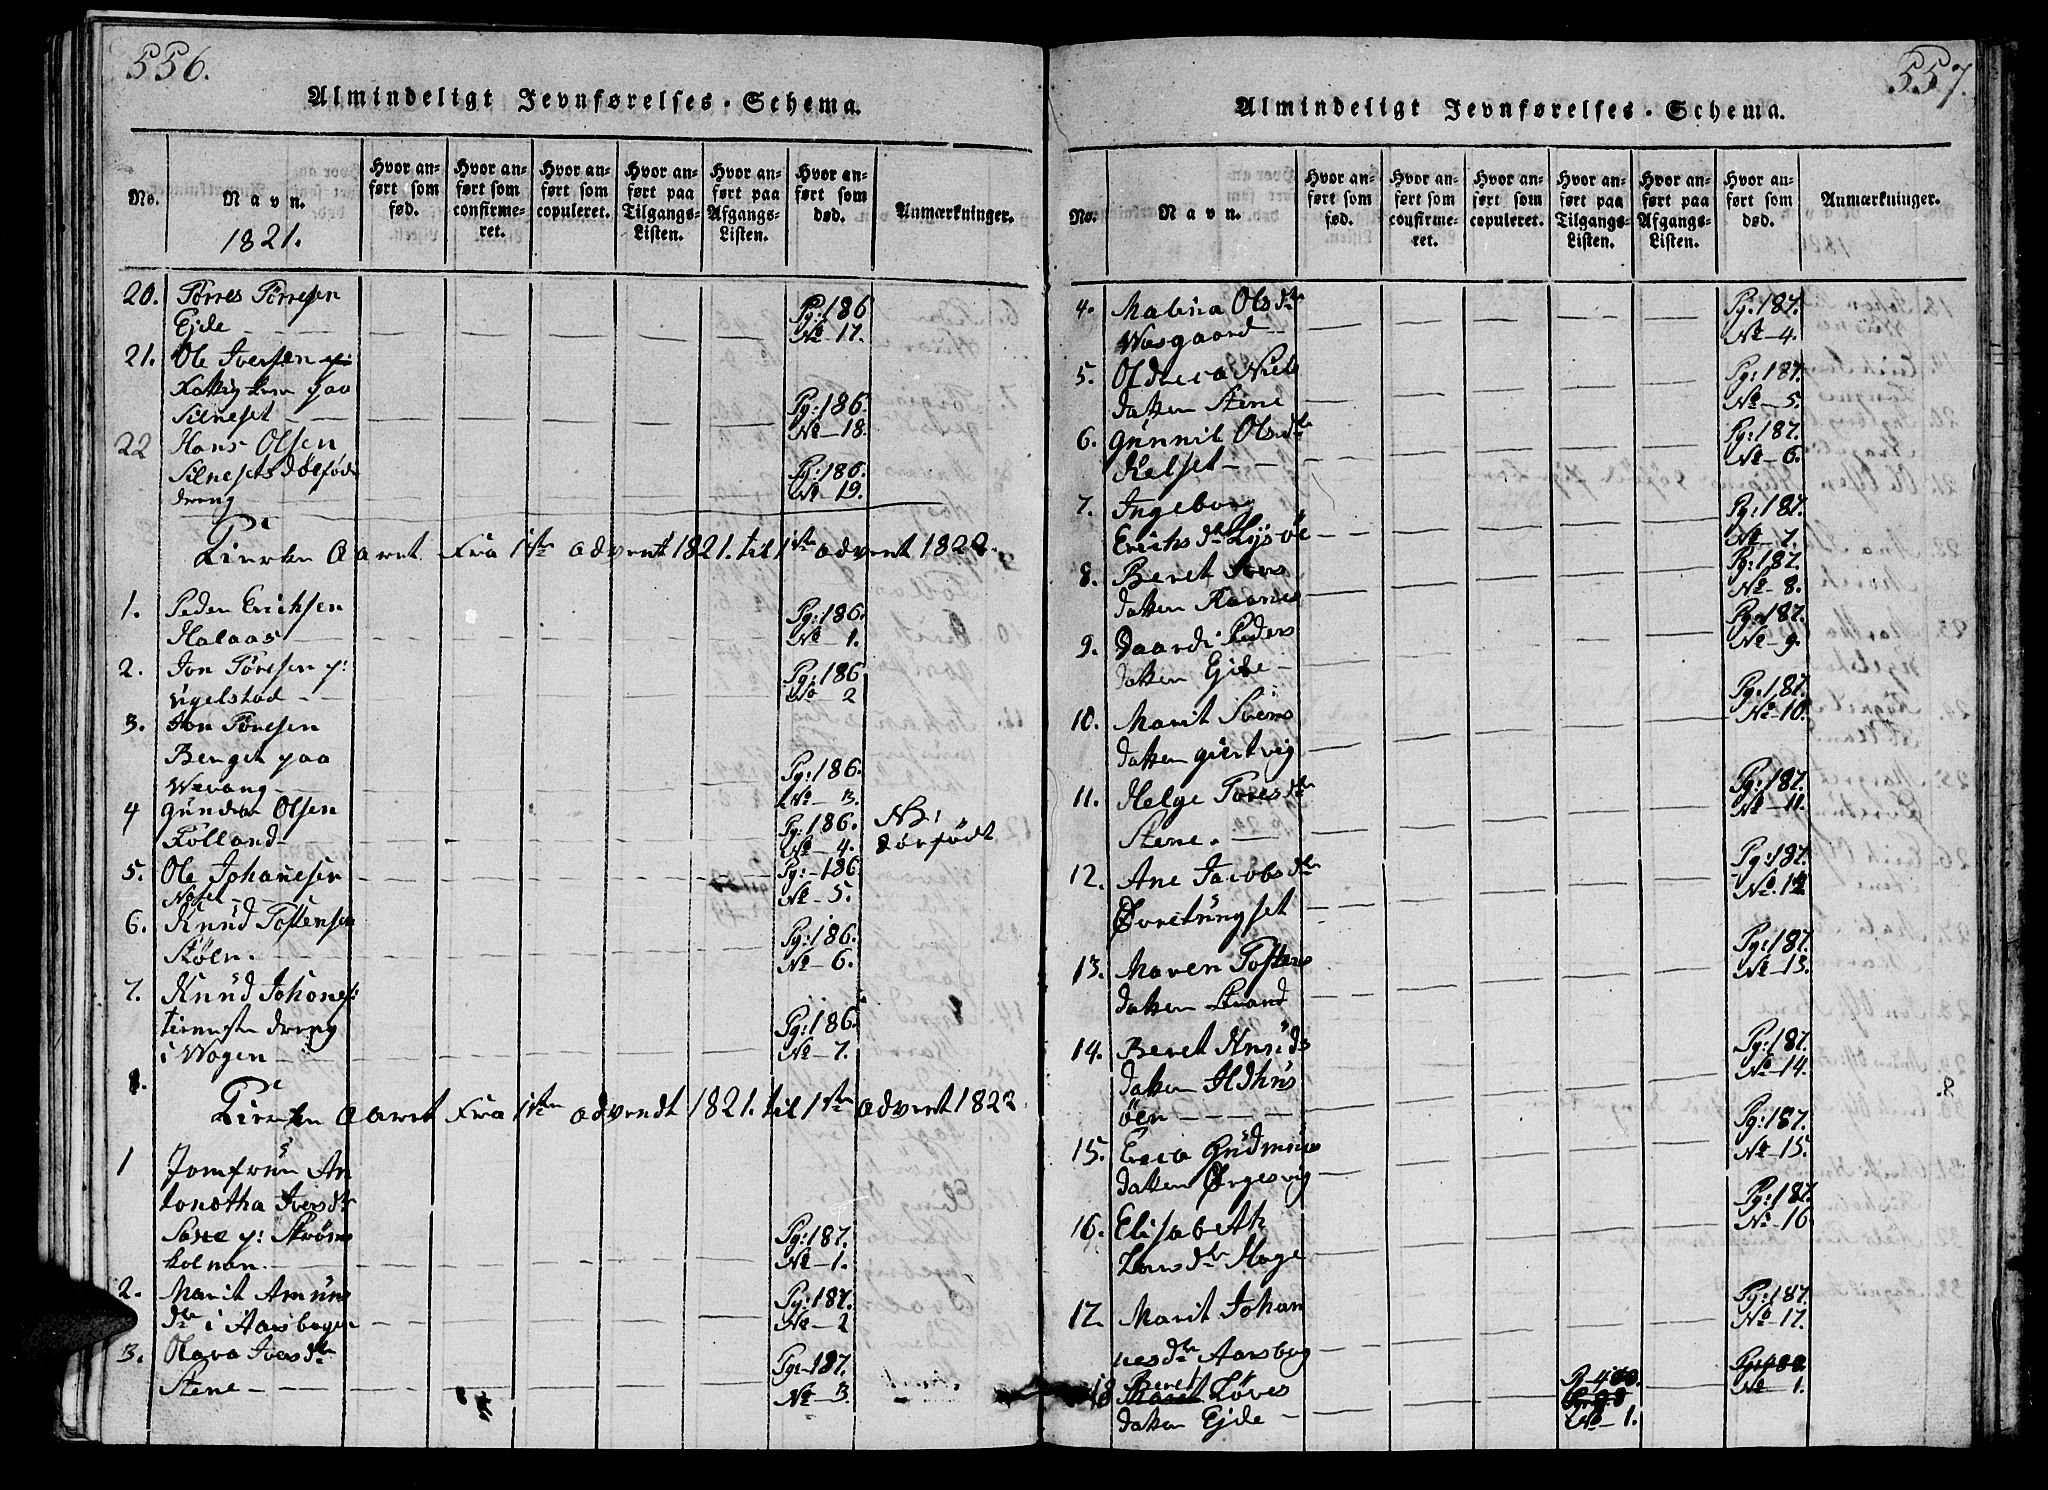 556.
Almindeligt Jevnførelses-Schema.
No.
Navn.
1821.
Hvor anført som fød.
Hvor anført som confirmeret.
Hvor anført som copuleret.
Hvor anført paa Tilgangs-Listen.
Hvor anført paa Afgangs-Listen.
Hvor anført som død.
Anmærkninger.
20. Törres Törresen
Ejde Pg: 186
No 17.
21. Ole Iversen
paa
Silneset Pg: 186.
No 18.
22 Hans Olsen
Silnesets dölföd
dreng Pg: 186.
No 19.
Kircke Aaret fra 1ste advent 1821. til 1ste advent 1822.
1. Peder Erichsen
Halaas Pg: 186.
No 1.
2. Jon Törresen p:
Vigelstad Pg: 186
No 2
3. Jon Tönesen
Berget paa
Wevang Pg: 186.
No 3.
4 Gundar Olsen
Tolland Pg: 186.
No 4.
NB:
dörfödt
5. Ole Johanesen
Pg: 186
No 5.
6. Knud Tostensen
Stöln. Pg: 186.
No 6.
7. Knud Johanes:
tienneste dreng
i Wagen Pg: 186.
No 7.
8.
Kircke Aaret fra 1ste advendt 1821. til 1ste advent 1822
1 Jomfrue An
tonetha Iversdtr
p: Ströms
holmen. Pg: 187.
No 1.
2. Marit Amuns
dtr i Aarsbogen Pg: 187.
No 2
3. Olava Iversdtr
Stene Pg: 187.
No 3.
557.
Almindeligt Jevnførelses-Schema.
No.
Navn.
Hvor anført som fød.
Hvor anført som confirmeret.
Hvor anført som copuleret.
Hvor anført paa Tilgangs-Listen.
Hvor anført paa Afgangs-Listen.
Hvor anført som død.
Anmærkninger.
4. Malena Olsdtr
Wasgaard Pg. 187.
No 4.
5. Niels
datter Stene Pg: 187.
No 5.
6. Gunnil Olsdtr
Kelset Pg: 187.
No 6.
7. Ingebor
Erichsdtr Lysöe Pg: 187.
No 7.
8. Beret Ivers
datter Raanes Pg: 187.
No 8.
9. Gaardi Peders
datter Ejde Pg: 187.
No 9.
10. Marit Svens
datter Giertvig Pg: 187.
No 10.
11. Helge Toresdtr
Stene. Pg: 187.
No 11.
12. Ane Jacobsdtr
Øvretungset Pg: 187.
No. 12
13. Maren Tostens
datter Strand Pg: 187.
No 13.
14. Beret Knuds
datter Ildhus
öen Pg: 187.
No 14.
15. Erica Gudmuns
datter Ørgesvig Pg: 187.
No 15.
16. Elisabeth
Larsdtr Hage Pg: 187.
No 16
17. Marit Johan
nesdtr Aarsbog Pg: 187
No 17.
18 Beret
datter Ejde
No 1.
No 1.